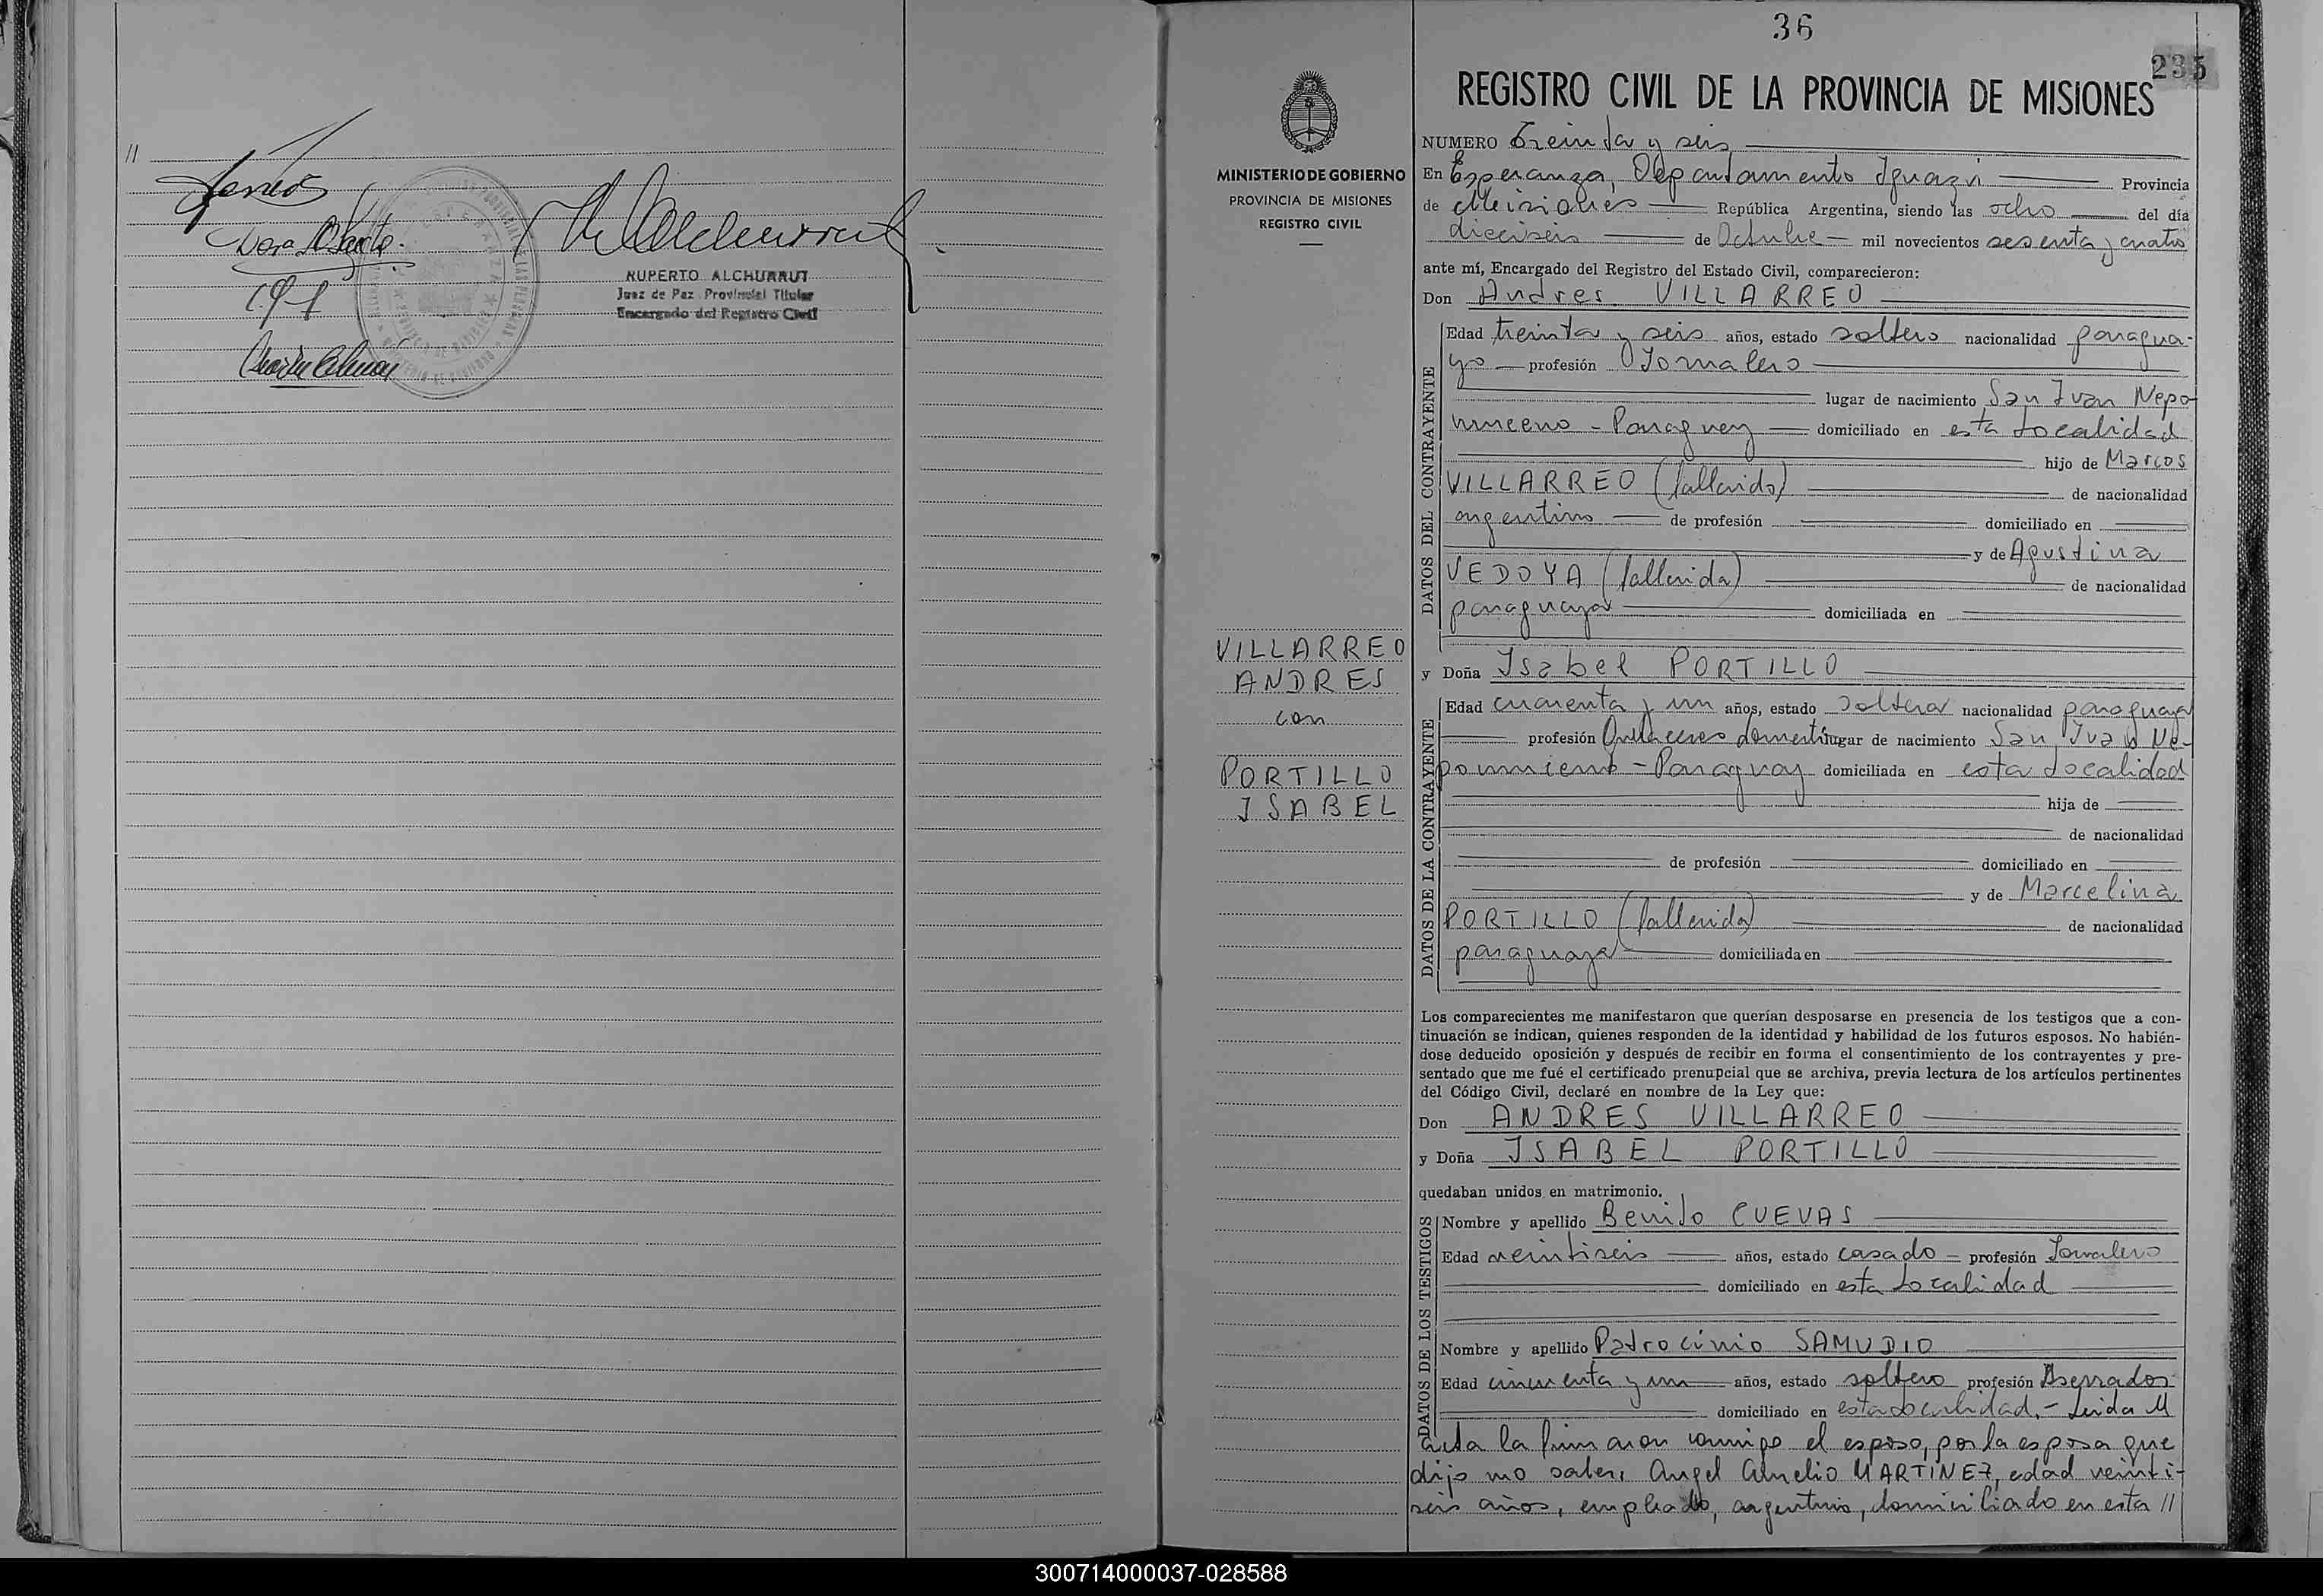 //
Vera
RUPERTO ALCHURRUT
Juez de Paz Provincial Titular
Encargado del Registro Civil
36
235
REGISTRO CIVIL DE LA PROVINCIA DE MISIONES
MINISTERIO DE GOBIERNO
PROVINCIA DE MISIONES
REGISTRO CIVIL
VILLARREO
ANDRES
con
PORTILLO
ISABEL
NUMERO Treinta y seis
En Esperanza, Departamento Iguazú Provincia
de Misiones República Argentina, siendo las ocho del día
dieciseis de Octubre mil novecientos sesenta y cuatro
ante mí, Encargado del Registro del Estado Civil, comparecieron:
Don Andres VILLARREO
DATOS DEL CONTRAYENTE
Edad treinta y seis años, estado soltero nacionalidad paragua-
yo profesión Jornalero
lugar de nacimiento San Juan Nepo-
muceno - Paraguay domiciliado en esta localidad
hijo de Marcos
VILLARREO (fallecido) de nacionalidad
argentino de profesión domiciliado en
y de Agustina
VEDOYA (fallecida) de nacionalidad
paraguaya domiciliada en
y Doña Isabel PORTILLO
DATOS DE LA CONTRAYENTE
Edad cuarenta y un años, estado soltera nacionalidad paraguaya
profesión Quehaceres domesti lugar de nacimiento San Juan Ne-
pomuceno - Paraguay domiciliada en esta localidad
hija de
de nacionalidad
de profesión domiciliado en
y de Marcelina
PORTILLO (fallecida) de nacionalidad
paraguaya domiciliada en
Los comparecientes me manifestaron que querían desposarse en presencia de los testigos que a con-
tinuación se indican, quienes responden de la identidad y habilidad de los futuros esposos. No habién-
dose deducido oposición y después de recibir en forma el consentimiento de los contrayentes y pre-
sentado que me fué el certificado prenupcial que se archiva, previa lectura de los artículos pertinentes
del Código Civil, declaré en nombre de la Ley que:
Don ANDRES VILLARREO
y Doña ISABEL PORTILLO
quedaban unidos en matrimonio.
DATOS DE LOS TESTIGOS
Nombre y apellido Benito CUEVAS
Edad veintiseis años, estado casado profesión Jornalero
domiciliado en esta localidad
Nombre y apellido Patrocinio SAMUDIO
Edad cincuenta y un años, estado soltero profesión Aserrador
domiciliado en esta localidad.- Leida el
acta la firmaron conmigo el esposo, por la esposa que
dijo no saber, Angel Amelio MARTINEZ, edad veinti-
seis años, empleado, argentino, domiciliado en esta //
300714000037-028588